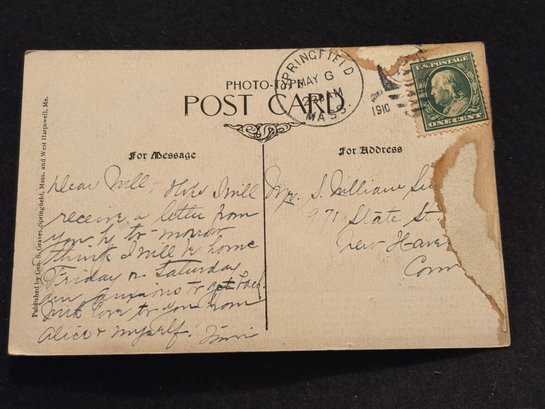 PHOTO-TYPE
POST CARD
SPRINGFIELD
MAY 6
AM
MASS.
1910
U.S. POSTAGE
ONE CENT
For Message
For Address
Published by Geo. S. Graves, Springfield, Mass. and West Harpswell, Me.
Dear Will - Hope I will
receive a letter from
you by to morrow
think I will be home
Friday or Saturday
am anxious to get back
Much love to you from
Alice & myself.
Mr. S. William
971
State St
New Haven
Conn